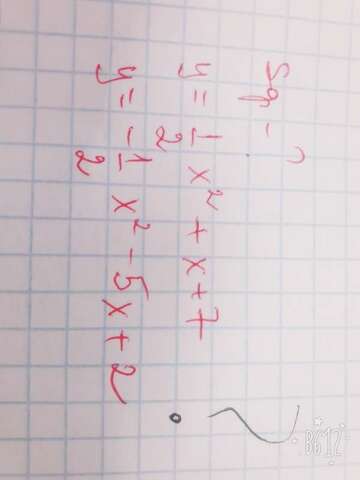 Sф - ?
y = 1/2 x² + x + 7
y = -1/2 x² - 5x + 2
B612